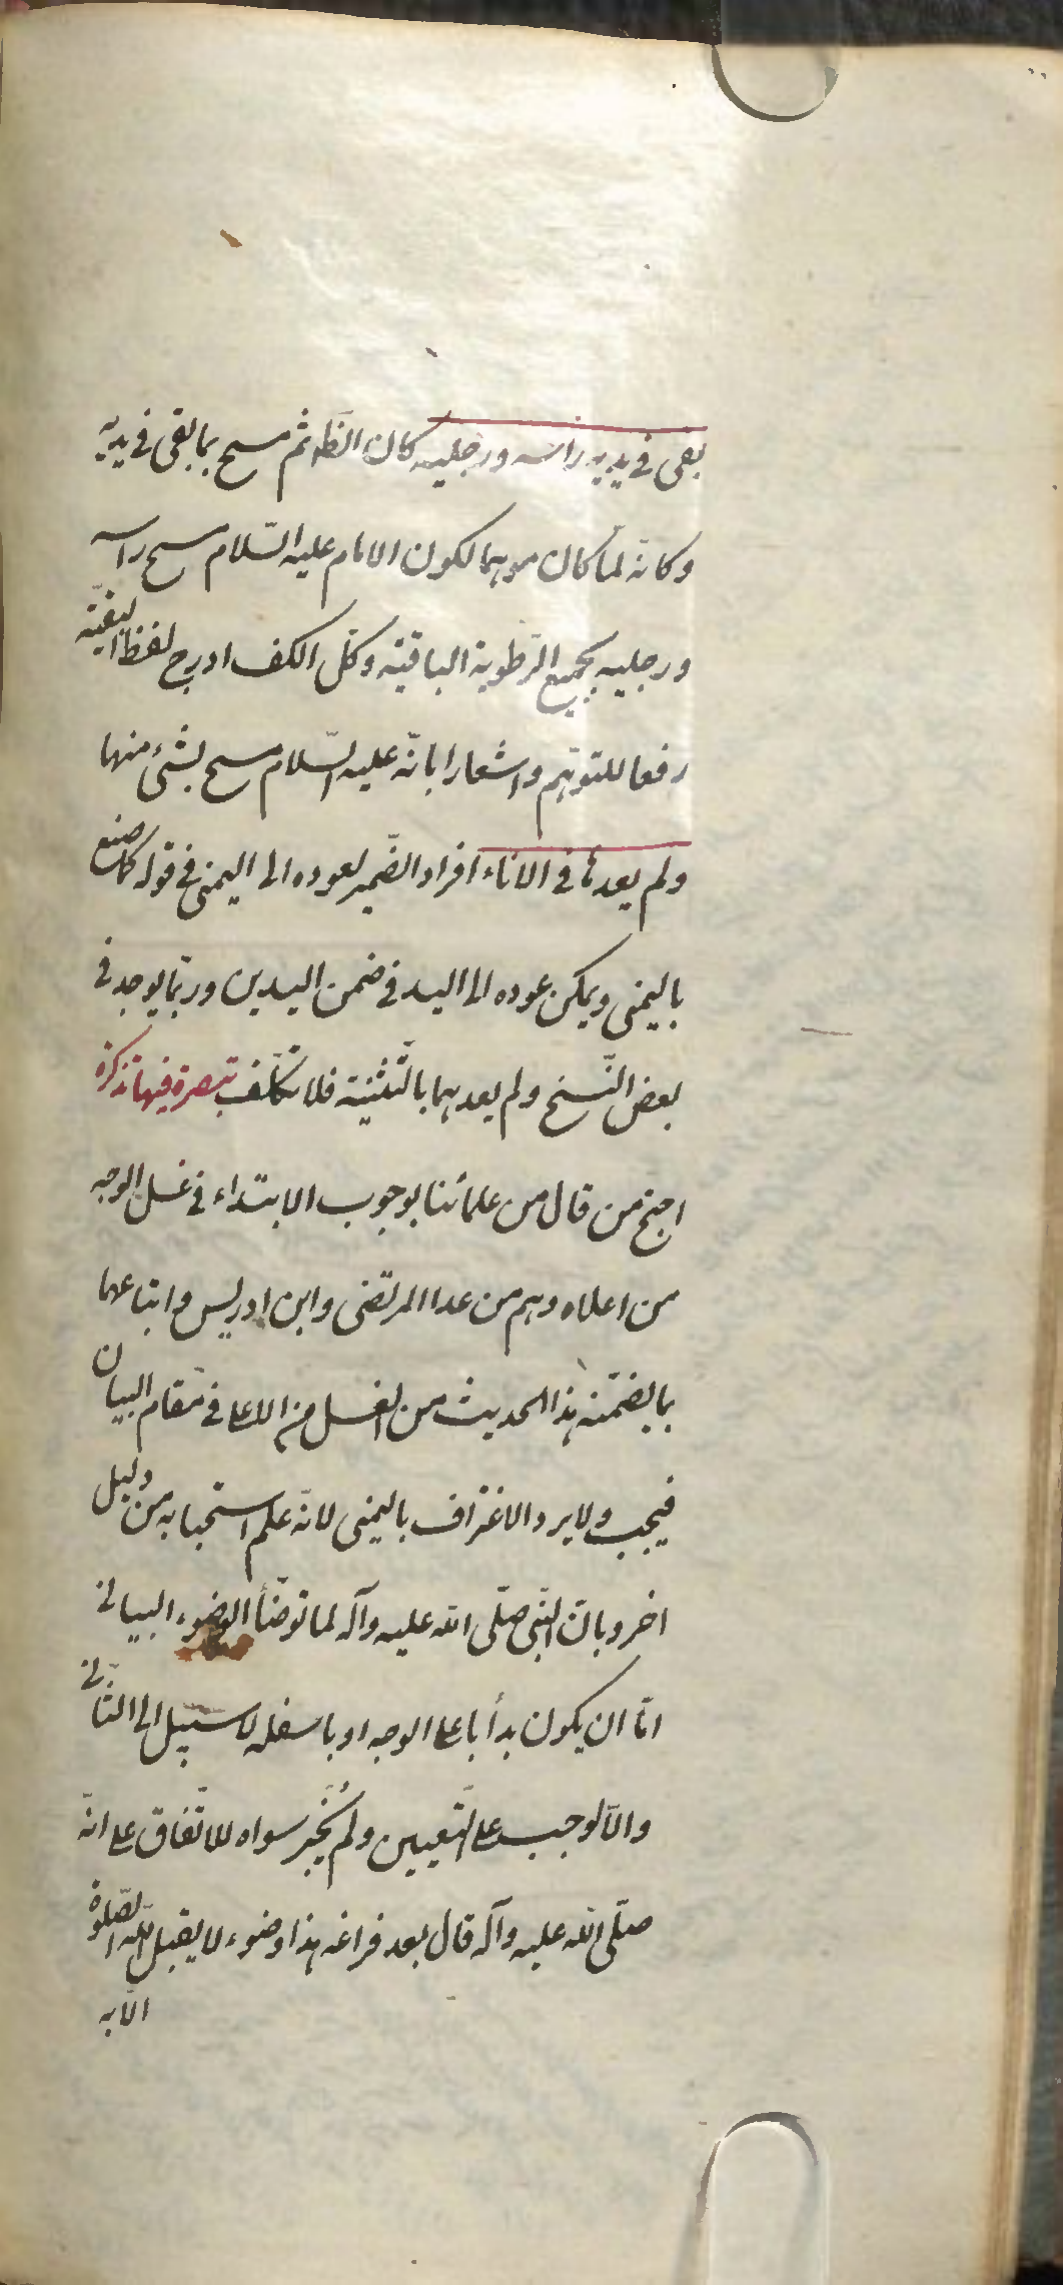 بقى فى يديه راسه ورجليه كان الظّ ثم مسح بما بقى فى يديه
وكانّه لمّا كان موهما لكون الامام عليه السّلام مسح راسه
ورجليه بجميع الرّطوبة الباقية وكلّ الكف ادرج لفظ البقيّة
رفعا للتوهّم واشعارا بانّه عليه السّلام مسح بشئ منها
ولم يعدها فى الاناء افراد الضّمير لعوده الى اليمنى فى قوله كما صنع
باليمنى ويمكن عوده الى اليد فى ضمن اليدين وربّما يوجد فى
بعض النّسخ ولم يعدهما بالتّثنية فلا تكلّف تبصرة فيها تذكرة
احتج من قال من علمائنا بوجوب الابتداء فى غسل الوجه
من اعلاه وهم من عدا المرتضى وابن ادريس واتباعهما
بما يضمّنه هذا الحديث من الغسل من الاعلى فى مقام البيان
فيجب ولا يرد الاغتراف باليمنى لانّه علم استحبابه من دليل
اخر وبانّ النّبى صلّى الله عليه وآله لما توضّأ الوضوء البيانى
امّا ان يكون بدأ باعلى الوجه او باسفله لا سبيل الى الثّانى
والّا لوجب على التّعيين ولم يُجز سواه للاتّفاق على انّه
صلّى الله عليه وآله قال بعد فراغه هذا وضوء لا يقبل الله الصّلوة
الّا به